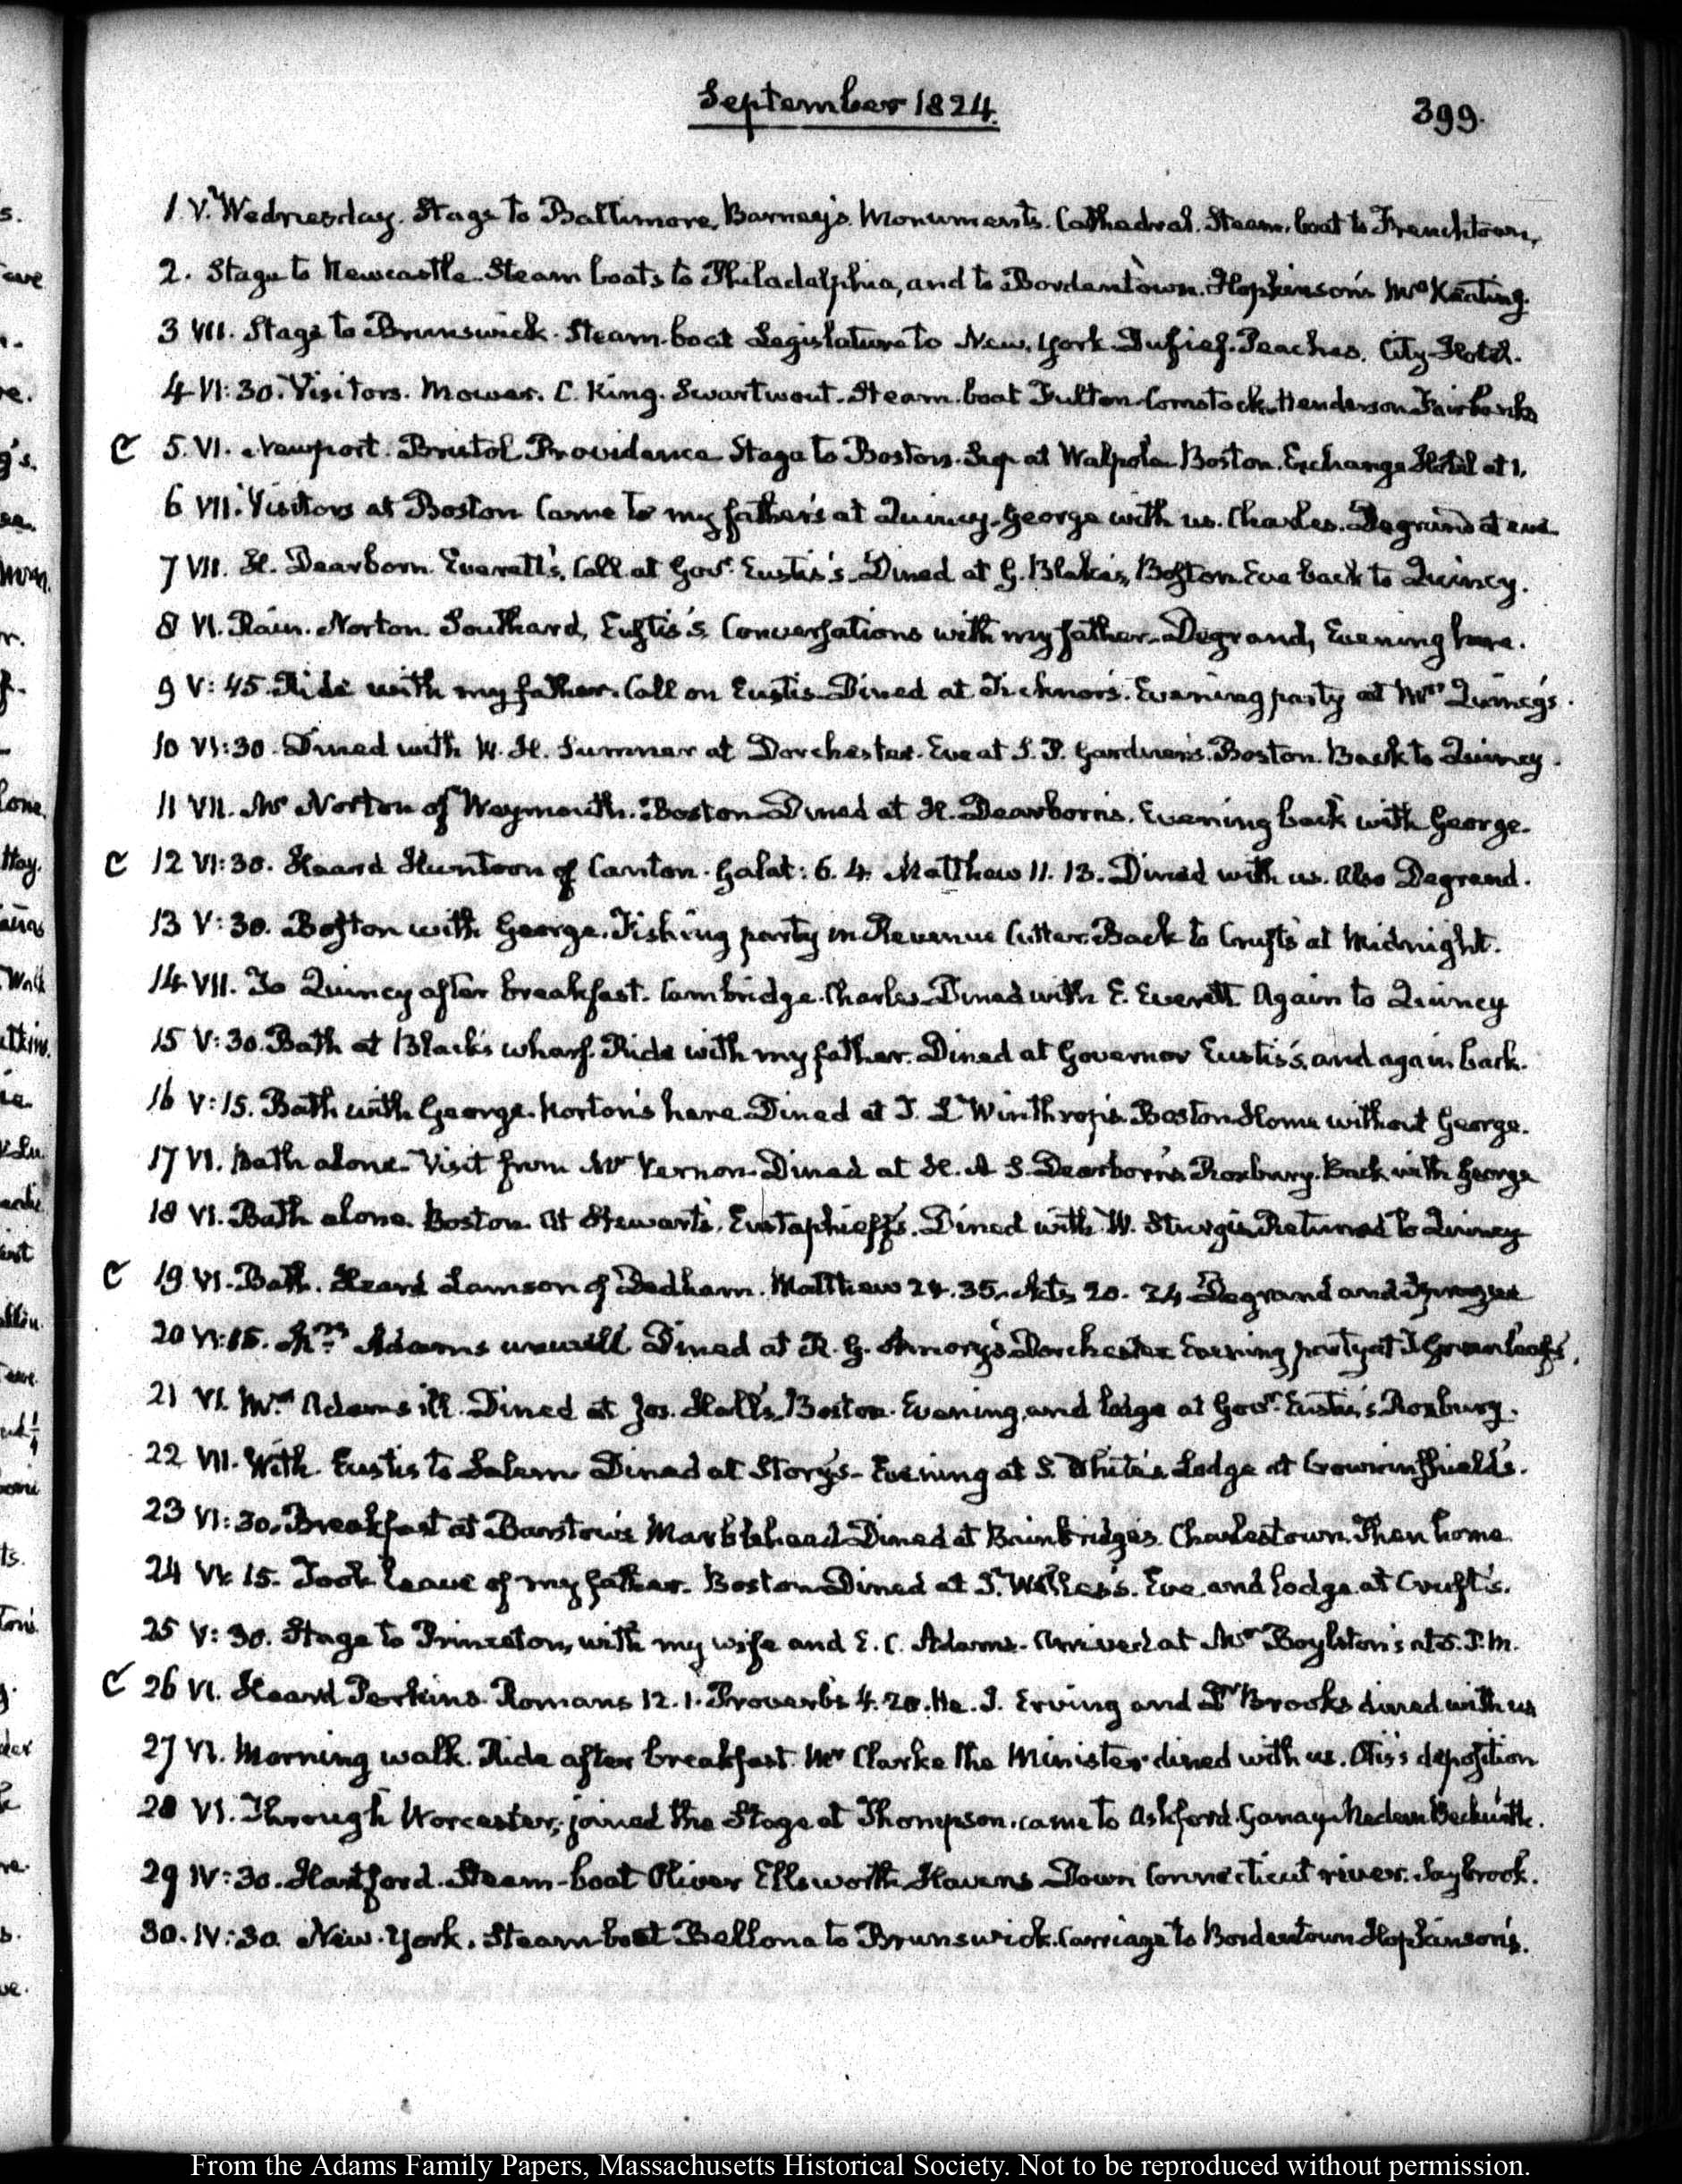 September 1824.
399.
1 V. Wednesday. Stage to Baltimore. Barney's. Monuments. Cathedral. Steam-boat to Frenchtown,
2. Stage to Newcastle. Steam boats to Philadelphia, and to Bordentown. Hopkinson's Mrs Keating.
3 VII. Stage to Brunswick. Steam-boat Legislature to New-York. Dufief. Peaches. City-Hotel.
4 VI:30. Visitors. Mower. C. King. Swartwout. Steam-boat Fulton Comstock. Henderson Fairbanks
C 5. VI. Newport. Bristol. Providence Stage to Boston. Sup at Walpole Boston. Exchange Hotel at 1.
6 VII. Visitors at Boston Came to my father's at Quincy. George with us. Charles. Degrand at eve.
7 VII. H. Dearborn. Everett's, Call at Govr. Eustis's. Dined at G. Blake's, Boston. Eve back to Quincy.
8 VI. Rain. Norton. Southard, Eustis's. Conversations with my father. Degrand, Evening here.
9 V:45. Ride with my father. Call on Eustis. Dined at Ticknor's. Evening party at Mrs Quincy's.
10 VI:30. Dined with W. H. Sumner at Dorchester. Eve at S. P. Gardner's. Boston. Back to Quincy.
11 VII. Mr Norton of Weymouth. Boston. Dined at H. Dearborn's. Evening back with George.
C 12 VI:30. Heard Huntoon of Canton. Galat: 6. 4. Matthew 11. 13. Dined with us. Also Degrand.
13 V:30. Boston with George. Fishing party in Revenue Cutter. Back to Cruft's at Midnight.
14 VII. To Quincy after breakfast. Cambridge. Charles. Dined with E. Everett. Again to Quincy
15 V:30. Bath at Black's wharf. Ride with my father. Dined at Governor Eustis's, and again back.
16 V:15. Bath with George. Norton's here. Dined at T. L. Winthrop's. Boston. Home without George.
17 VI. Bath alone. Visit from Mr Vernon. Dined at H. A S. Dearborn's Roxbury. Back with George
18 VI. Bath alone. Boston. At Stewart's. Eustaphieff's. Dined with W. Sturgis. Returned to Quincy
C 19 VI. Bath. Heard Lamson of Dedham. Matthew 24. 35. Acts 20. 24 Degrand and
20 VI:15. Mrs Adams unwell. Dined at R. G. Amory's Dorchester Evening party at Greenleaf's.
21 VI. Mrs Adams ill. Dined at Jos. Hall's, Boston. Evening, and lodge at Govr. Eustis's Roxbury.
22 VII. With Eustis to Salem. Dined at Story's. Evening at S. White's. Lodge at Crowninshield's.
23 VI:30. Breakfast at Barstow's Marblehead. Dined at Bainbridge's. Charlestown. Then home.
24 VI: 15. Took leave of my father. Boston. Dined at Eve and lodge at Cruft's.
25 V:30. Stage to Princeton, with my wife and E. C. Adams. Arrived at Mr Boylston's at 5. P.M.
C 26 VI. Heard Perkins. Romans 12. 1. Proverbs 4. 20. He. J. Erving and Dr Brooks dined with us
27 VI. Morning walk. Ride after breakfast. Mr Clarke the Minister dined with us. Otis's deposition
28 VI. Through Worcester; joined the Stage at Thompson. came to Ashford. Beckwith.
29 IV:30. Hartford. Steam-boat Oliver Ellsworth. Havens. Down Connecticut river. Saybrook.
30. IV:30. New-York. Steam-boat Bellona to Brunswick. Carriage to Bordentown Hopkinson's.
From the Adams Family Papers, Massachusetts Historical Society. Not to be reproduced without permission.